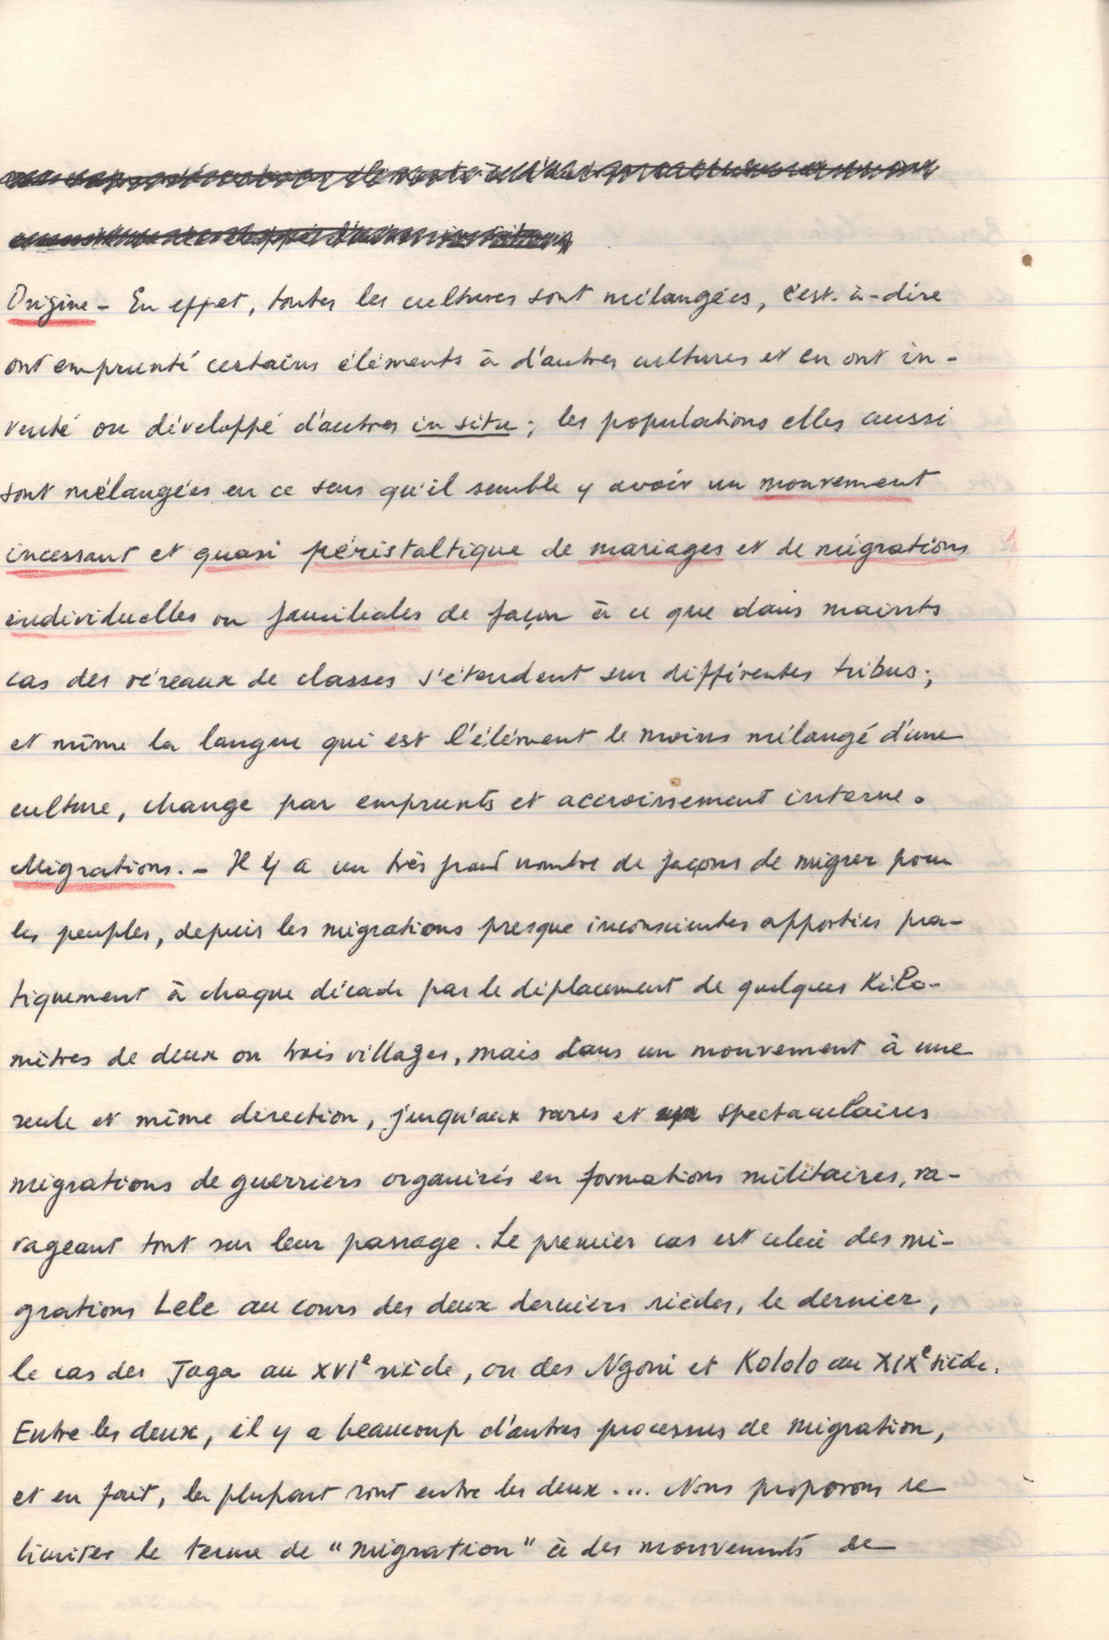 Origine - En effet, toutes les cultures sont mélangées, c'est-à-dire
ont emprunté certains éléments à d'autres cultures et en ont in-
venté ou développé d'autres in situ; les populations elles aussi
sont mélangées en ce sens qu'il semble y avoir un mouvement
incessant et quasi péristaltique de mariages et de migrations
individuelles ou familiales de façon à ce que dans maints
cas des réseaux de classes s'étendent sur différentes tribus;
et même la langue qui est l'élément le moins mélangé d'une
culture, change par emprunts et accroissement interne.
Migrations. - Il y a un très grand nombre de façons de migrer pour
les peuples, depuis les migrations presque inconscientes apporties pra-
tiquement à chaque décade par le déplacement de quelques kilo-
mètres de deux ou trois villages, mais dans un mouvement à une
seule et même direction, jusqu'aux rares et spectaculaires
migrations de guerriers organisés en formations militaires, ra-
vageant tout sur leur passage. Le premier cas est celui des mi-
grations Lele au cours des deux derniers siècles, le dernier,
le cas des Jaga au XVIe siècle, ou des Ngoni et Kololo au XIXe siècle.
Entre les deux, il y a beaucoup d'autres processus de migration,
et en fait, la plupart sont entre les deux.... Nous proposons de
limiter le terme de "migration" à des mouvements de